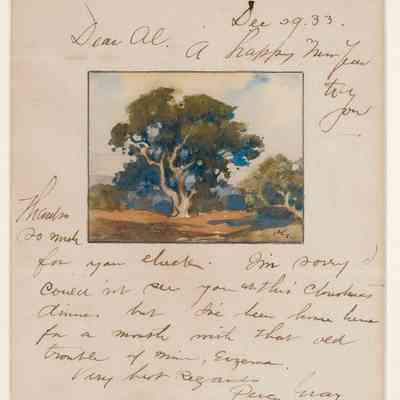 Dec 29. 33.
Dear Al. A happy New Year
to
you
Thanks
so much
for your check. I'm sorry I
could not see you at this Christmas
dinner but I've been home here
for a month with that old
trouble of mine, Eczema.
Very best Regards
Percy Gray